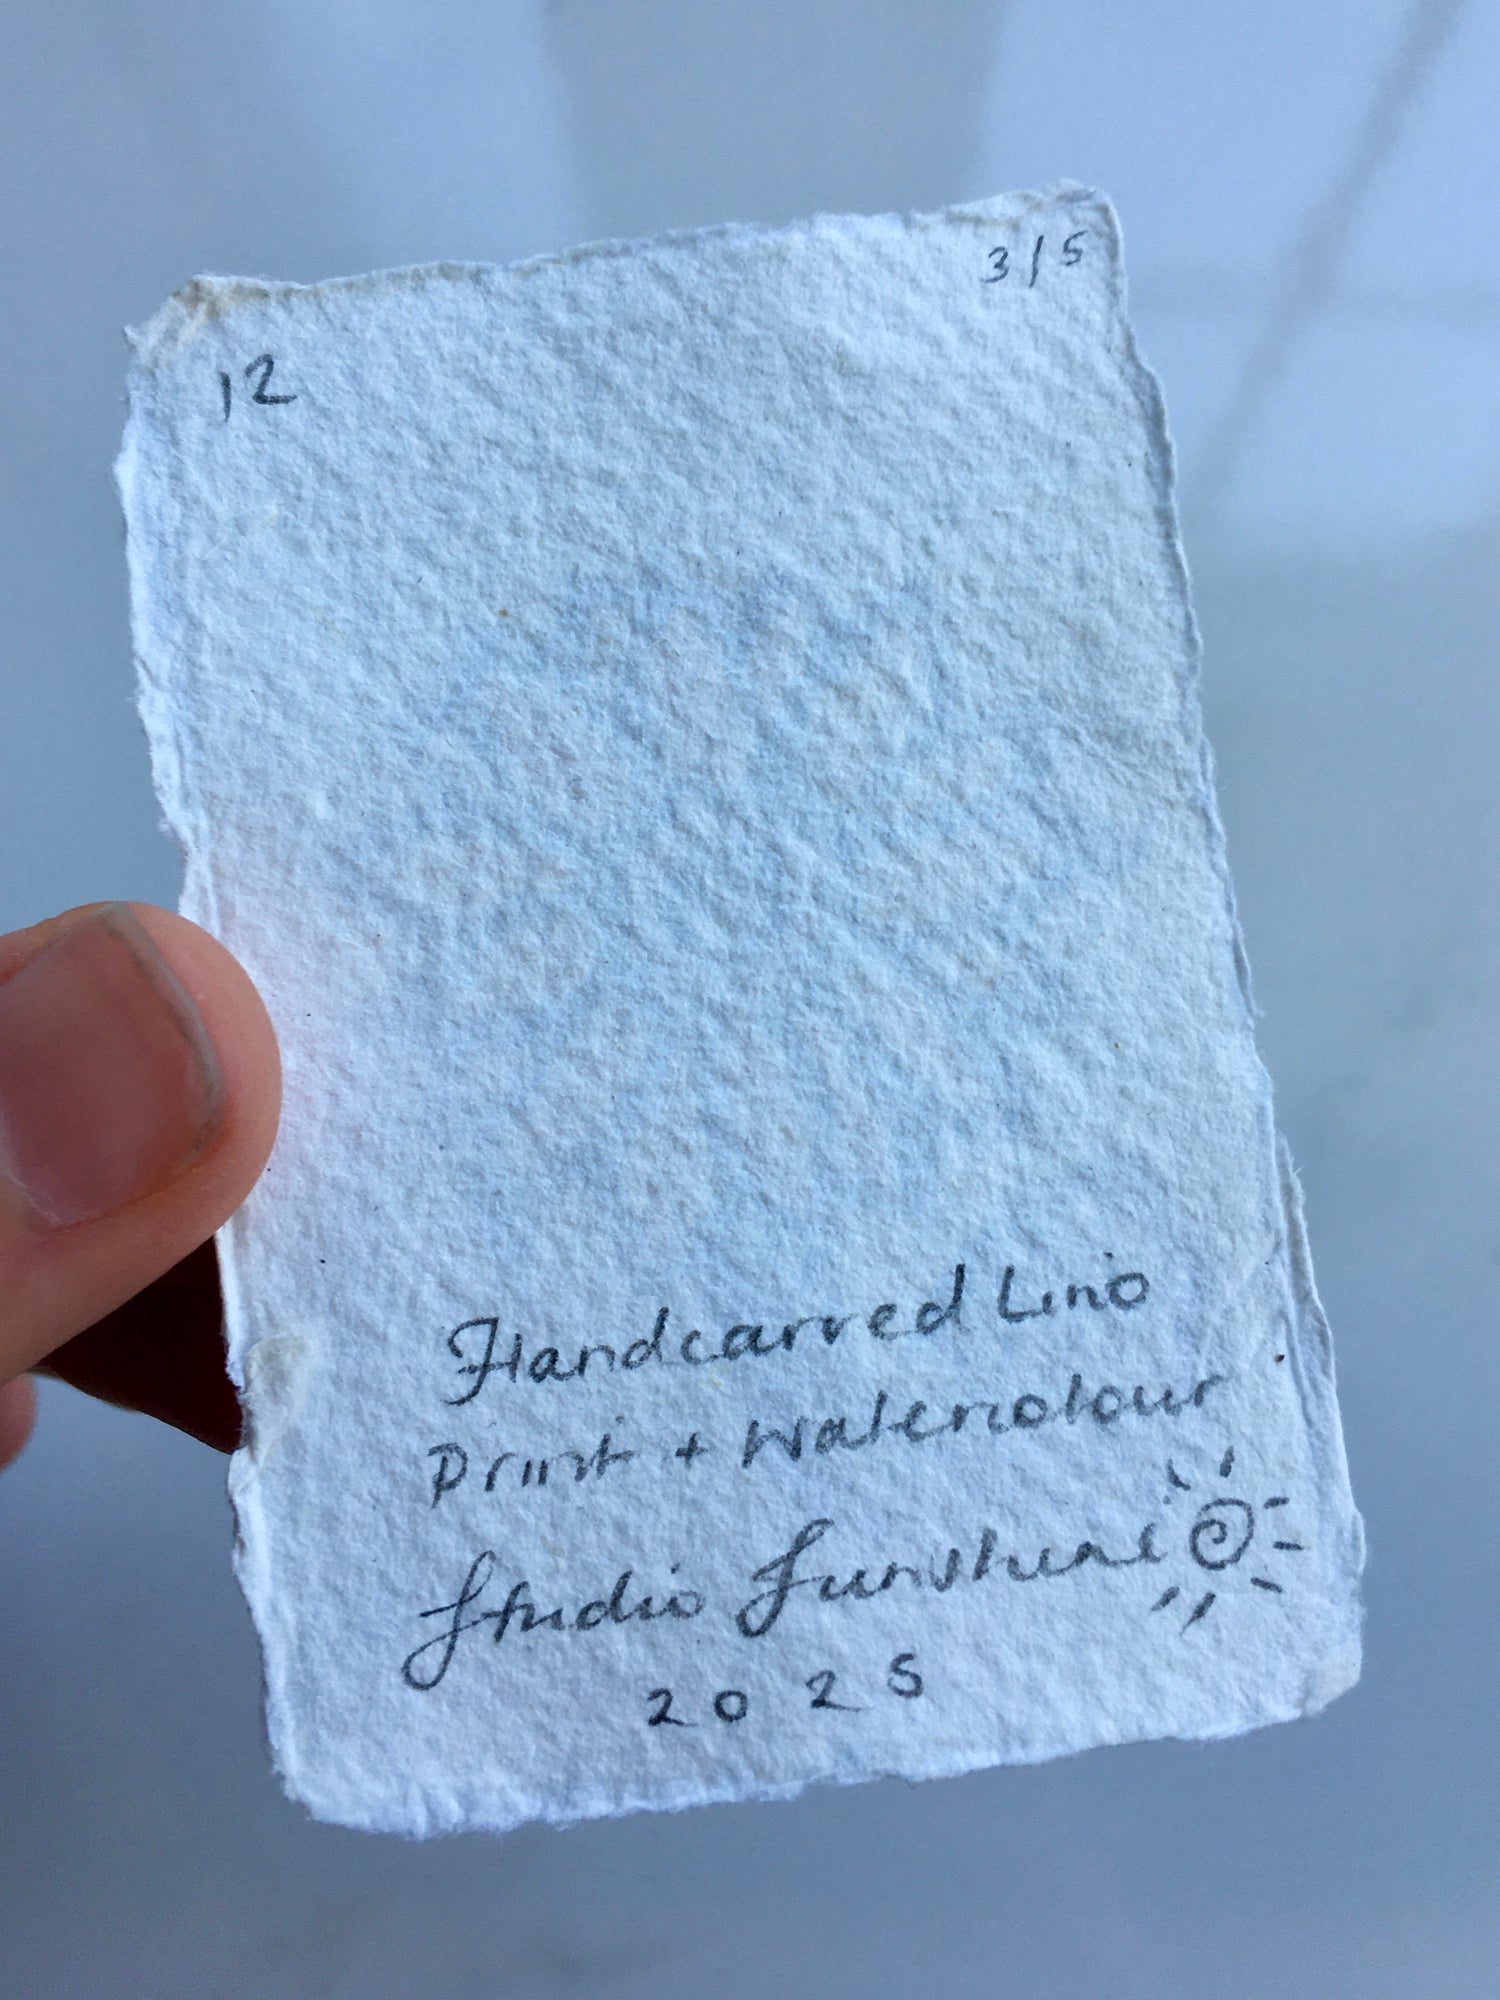 12
3/5
Handcarved Lino
Print + Watercolour
Studio Sunshine
2025